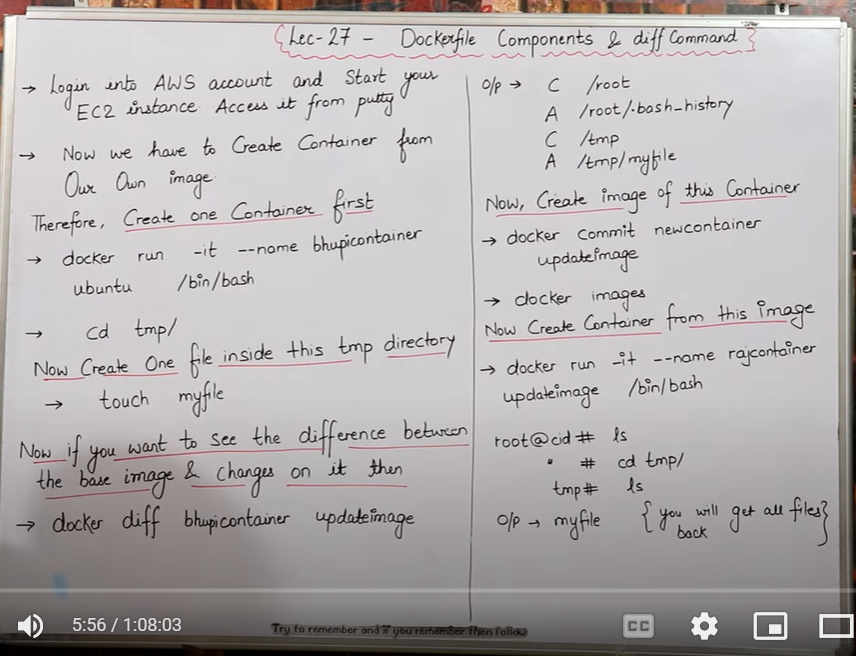 Lec-27 - Dockerfile Components & diff Command
→ Login into AWS account and Start your
EC2 instance. Access it from putty
→ Now we have to Create Container from
Our Own image.
Therefore, Create one Container first
→ docker run -it --name bhupicontainer
ubuntu /bin/bash
→ cd tmp/
Now Create One file inside this tmp directory
→ touch myfile
Now if you want to see the difference between
the base image & changes on it then
→ docker diff bhupicontainer updateimage
O/p → C /root
A /root/.bash_history
C /tmp
A /tmp/myfile
Now, Create image of this Container
→ docker commit newcontainer
updateimage
→ docker images
Now Create Container from this image
→ docker run -it --name rajcontainer
updateimage /bin/bash
root@cid# ls
" # cd tmp/
tmp# ls
O/p → myfile {you will get all files}
back
5:56 / 1:08:03
Try to remember and if you remember then follow
CC